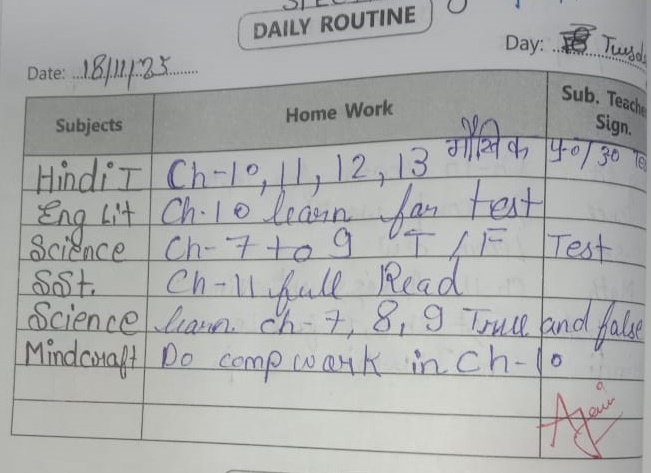 DAILY ROUTINE
Day: Tuesd
Date: 18/11/25
Subjects Home Work Sub. Teache Sign.
Hindi I Ch-10, 11, 12, 13 मौखिक 40/30 Te
Eng Lit Ch. 10 learn for test
Science Ch- 7 to 9 T/F Test
SSt. Ch-11 full Read
Science learn ch-7, 8, 9 True and false
Mindcraft Do comp work in Ch-10